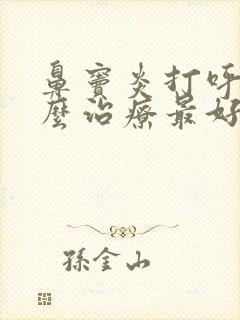 鼻竇炎打呼
麼治療最好
孫金山